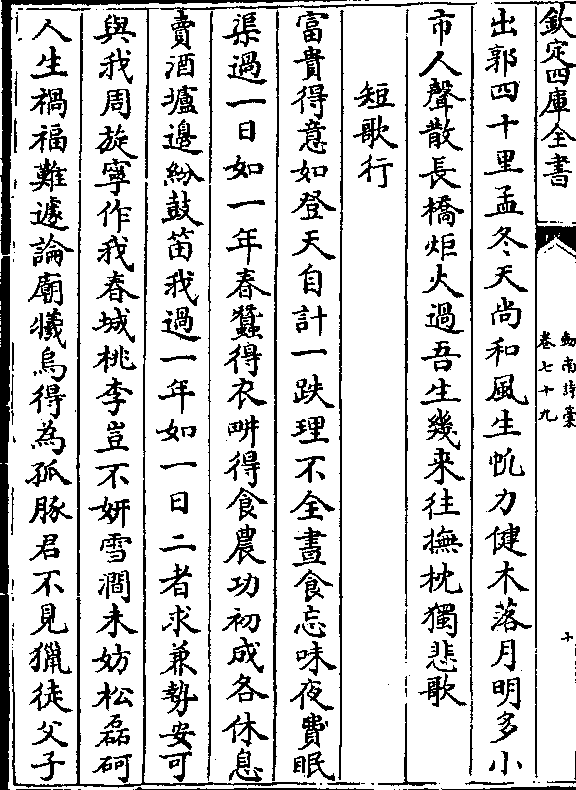 欽定四庫全書
劍南詩稾
卷七十九
十
出郭四十里孟冬天尚和風生帆力健木落月明多小
市人聲散長橋炬火過吾生幾来往撫枕獨悲歌
短歌行
富貴得意如登天自計一跌理不全晝食忘味夜費眠
渠過一日如一年春蠶得衣畊得食農功初成各休息
賣酒壚邊紛鼓笛我過一年如一日二者求兼勢安可
與我周旋寧作我春城桃李豈不妍雪澗未妨松磊砢
人生禍福難遽論廟犧烏得為孤豚君不見獵徒父子